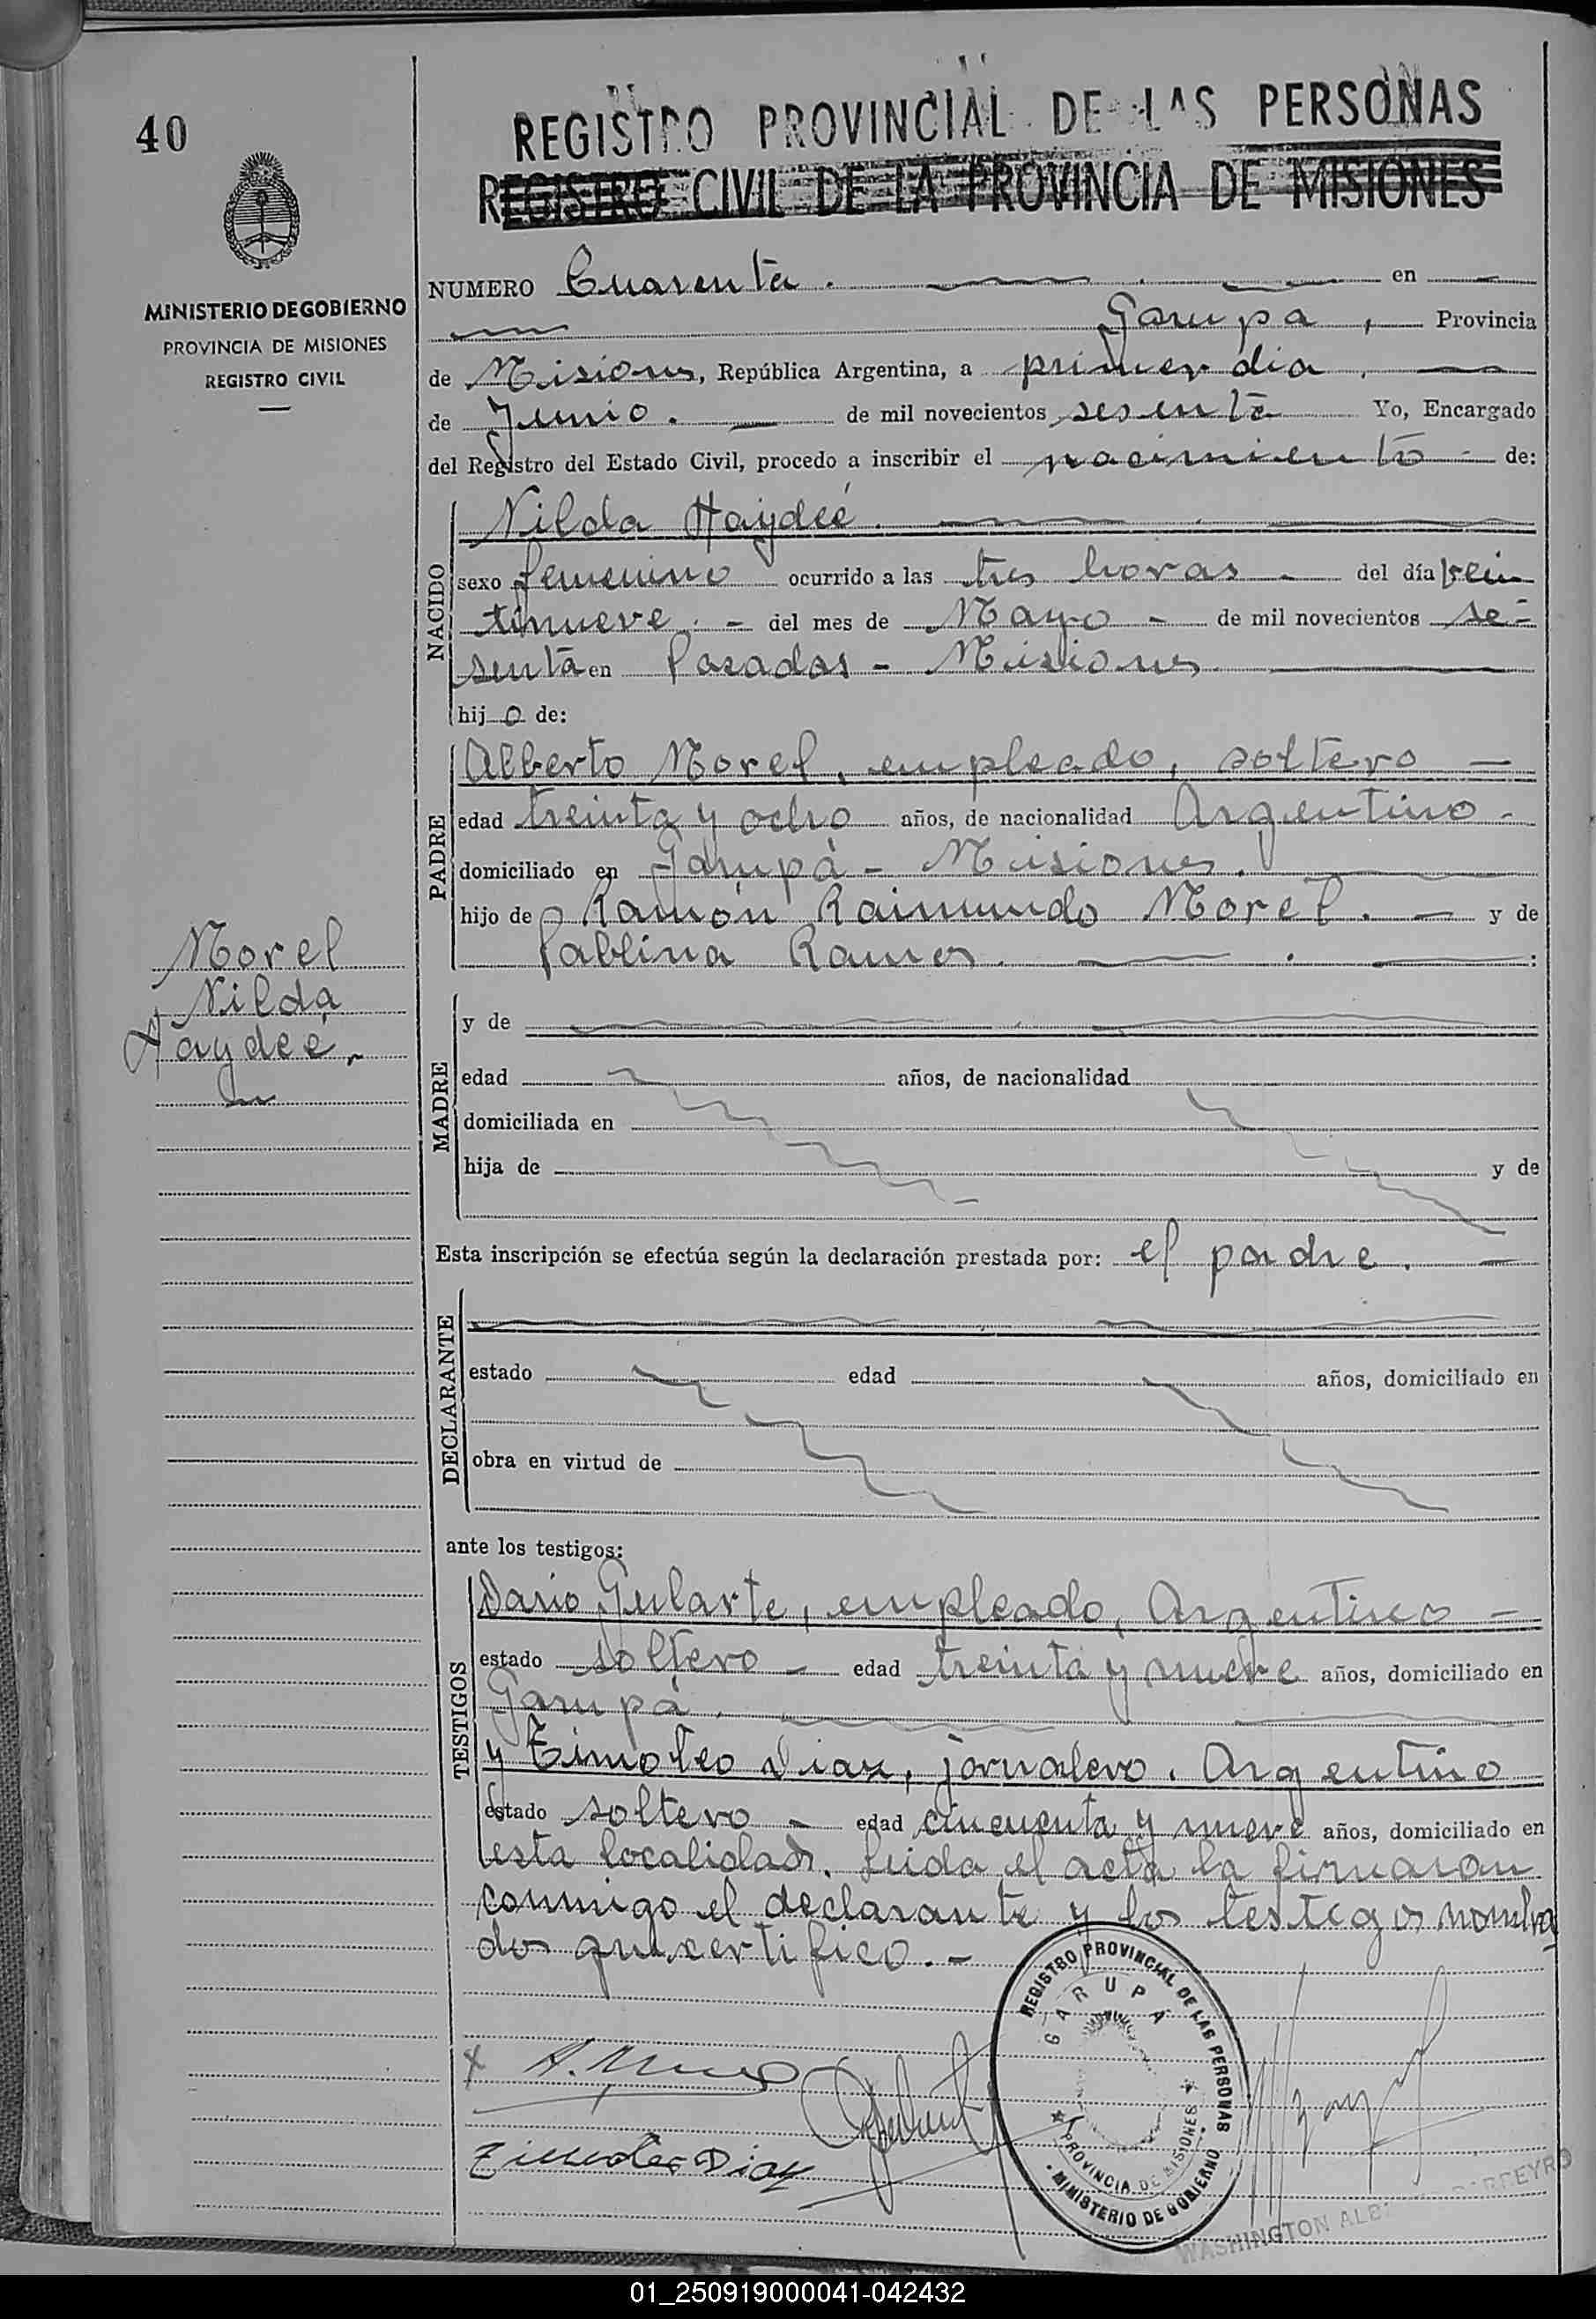 40
MINISTERIO DE GOBIERNO
PROVINCIA DE MISIONES
REGISTRO CIVIL
REGISTRO PROVINCIAL DE LAS PERSONAS
REGISTRO CIVIL DE LA PROVINCIA DE MISIONES
NUMERO Cuarenta. en
Garupa, Provincia
de Misiones, República Argentina, a primer dia
de Junio. de mil novecientos sesenta Yo, Encargado
del Registro del Estado Civil, procedo a inscribir el nacimiento - de:
NACIDO
Nilda Haydeé.
sexo femenino ocurrido a las tres horas - del día vein
tinueve. - del mes de Mayo - de mil novecientos se-
senta en Posadas - Misiones
hijo de:
PADRE
Alberto Morel, empleado, soltero -
edad treinta y ocho años, de nacionalidad Argentino -
domiciliado en Garupá - Misiones.
hijo de Ramón Raimundo Morel. - y de
Pablina Ramos.
Morel
Nilda
Haydeé.
MADRE
y de
edad años, de nacionalidad
domiciliada en
hija de y de
Esta inscripción se efectúa según la declaración prestada por: el padre. -
DECLARANTE
estado edad años, domiciliado en
obra en virtud de
ante los testigos:
TESTIGOS
Dario Gularte, empleado, Argentino -
estado soltero - edad treinta y nueve años, domiciliado en
Garupá.
y Timoteo Diaz, jornalero. Argentino
estado soltero - edad cincuenta y nueve años, domiciliado en
esta localidad. Leida el acta la firmaron
conmigo el declarante y los testigos nombra
dos que certifico. -
REGISTRO PROVINCIAL DE LAS PERSONAS
GARUPÁ
PROVINCIA DE MISIONES
MINISTERIO DE GOBIERNO
Timoteo Diaz
WASHINGTON
01_250919000041-042432